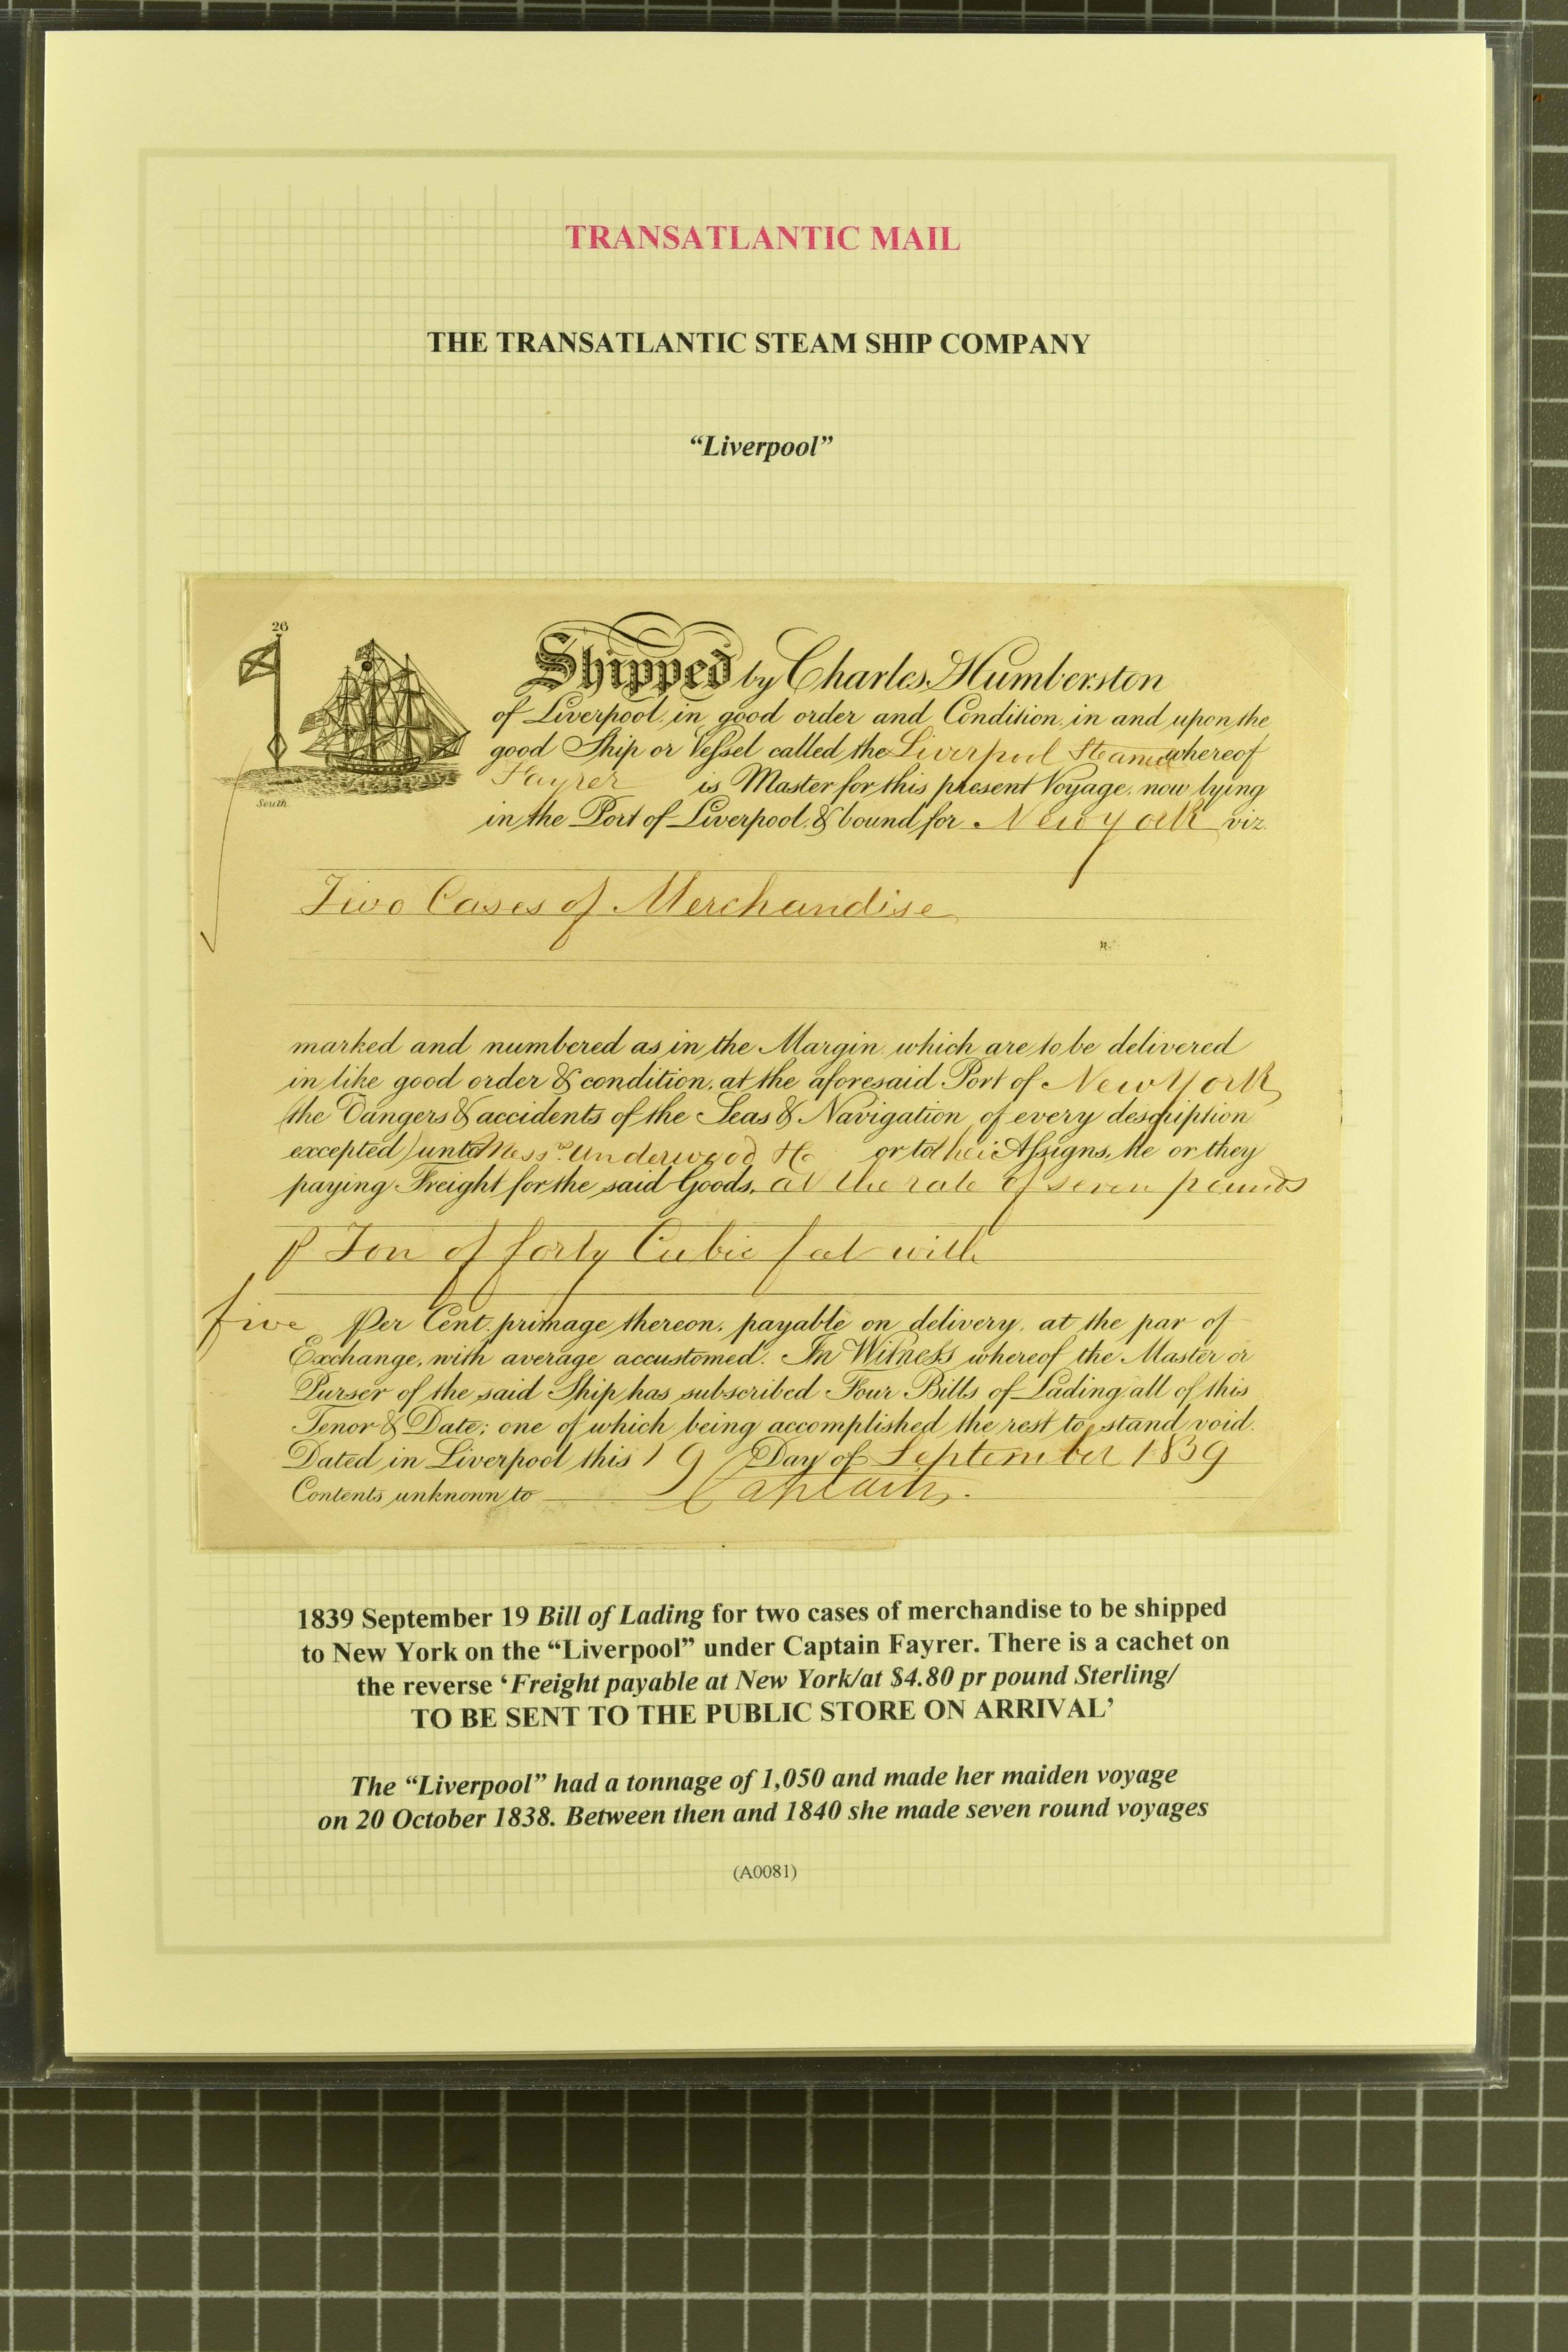 TRANSATLANTIC MAIL
THE TRANSATLANTIC STEAM SHIP COMPANY
“Liverpool”
26
South
Shipped by Charles Humberston
of Liverpool, in good order and Condition, in and upon the
good Ship or Vessel called the Liverpool Steamer whereof
Fayrer is Master for this present Voyage, now lying
in the Port of Liverpool, & bound for New York viz.
Two Cases of Merchandise
marked and numbered as in the Margin, which are to be delivered
in like good order & condition, at the aforesaid Port of New York
(the Dangers & accidents of the Seas & Navigation of every description
excepted) unto Mess.rs Underwood or to their Assigns, he or they
paying Freight for the said Goods, at the rate of seven pounds
P Ton of forty Cubic feet with
five Per Cent. primage thereon, payable on delivery, at the par of
Exchange, with average accustomed. In Witness whereof the Master or
Purser of the said Ship has subscribed Four Bills of Lading all of this
Tenor & Date; one of which being accomplished the rest to stand void.
Dated in Liverpool this 19 Day of September 1839
Contents unknown to Captain.
1839 September 19 Bill of Lading for two cases of merchandise to be shipped
to New York on the “Liverpool” under Captain Fayrer. There is a cachet on
the reverse ‘Freight payable at New York/at $4.80 pr pound Sterling/
TO BE SENT TO THE PUBLIC STORE ON ARRIVAL’
The “Liverpool” had a tonnage of 1,050 and made her maiden voyage
on 20 October 1838. Between then and 1840 she made seven round voyages
(A0081)